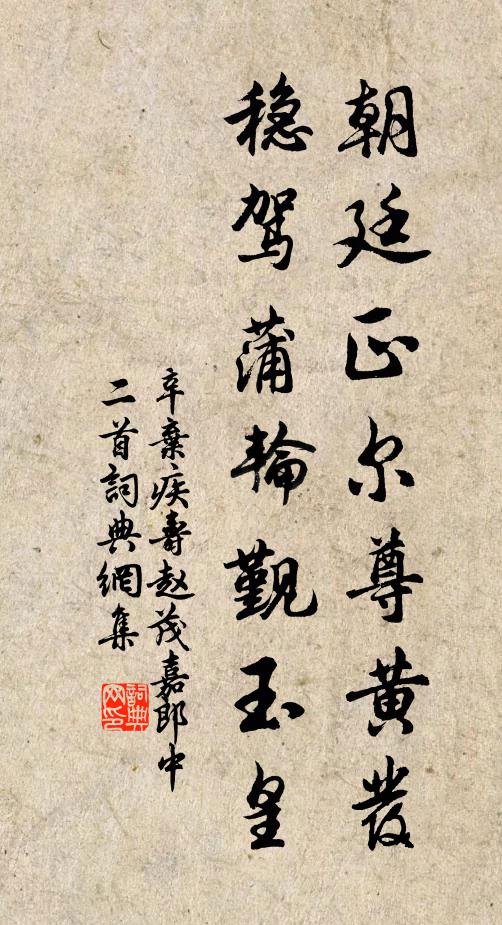 朝廷正尔尊黄发
稳驾蒲轮觐玉皇
辛棄疾壽赵茂嘉郎中
二首詞典網集
詞典网印